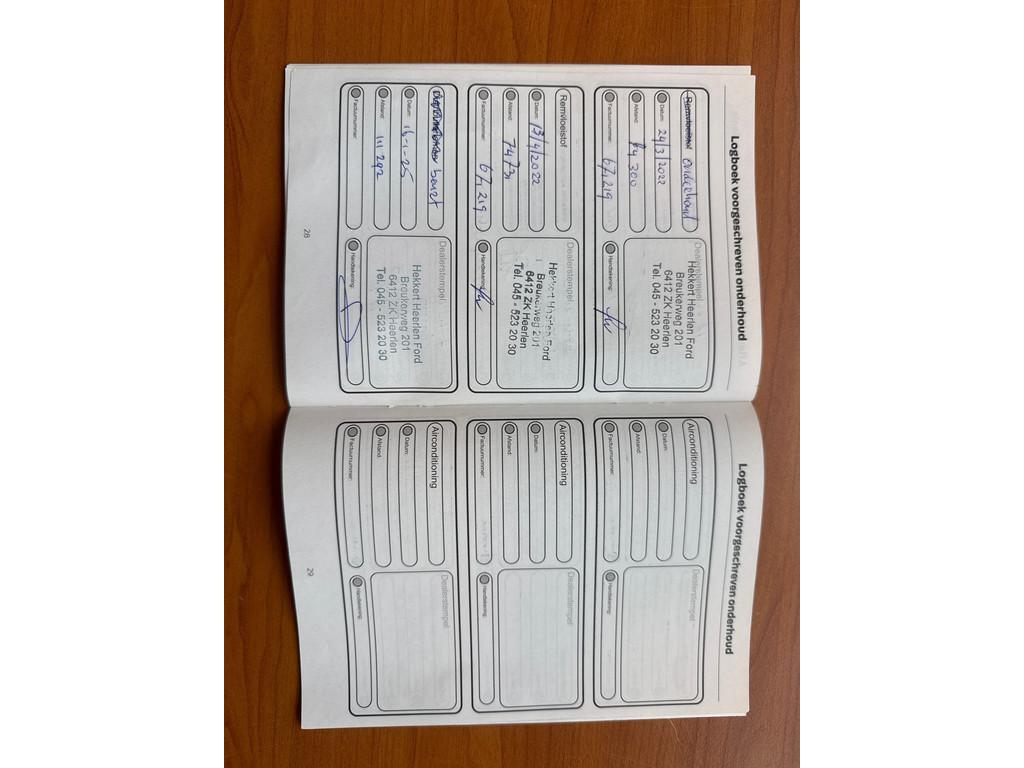 Logboek voorgeschreven onderhoud
Remvloeistof onderhoud
Datum: 24/3/2022
Afstand: 74 300
Factuurnummer: 671219
Dealerstempel
Hekkert Heerlen Ford
Breukerweg 201
6412 ZK Heerlen
Tel. 045 - 523 20 30
Handtekening:
Remvloeistof
Datum: 13/4/2022
Afstand: 74731
Factuurnummer: 671219
Dealerstempel
Hekkert Heerlen Ford
Breukerweg 201
6412 ZK Heerlen
Tel. 045 - 523 20 30
Handtekening:
beurt
Datum: 16-1-25
Afstand: 111 292
Factuurnummer:
Dealerstempel
Hekkert Heerlen Ford
Breukerweg 201
6412 ZK Heerlen
Tel. 045 - 523 20 30
Handtekening:
28
Logboek voorgeschreven onderhoud
Airconditioning
Datum:
Afstand:
Factuurnummer:
Dealerstempel
Handtekening:
Airconditioning
Datum:
Afstand:
Factuurnummer:
Dealerstempel
Handtekening:
Airconditioning
Datum:
Afstand:
Factuurnummer:
Dealerstempel
Handtekening:
29